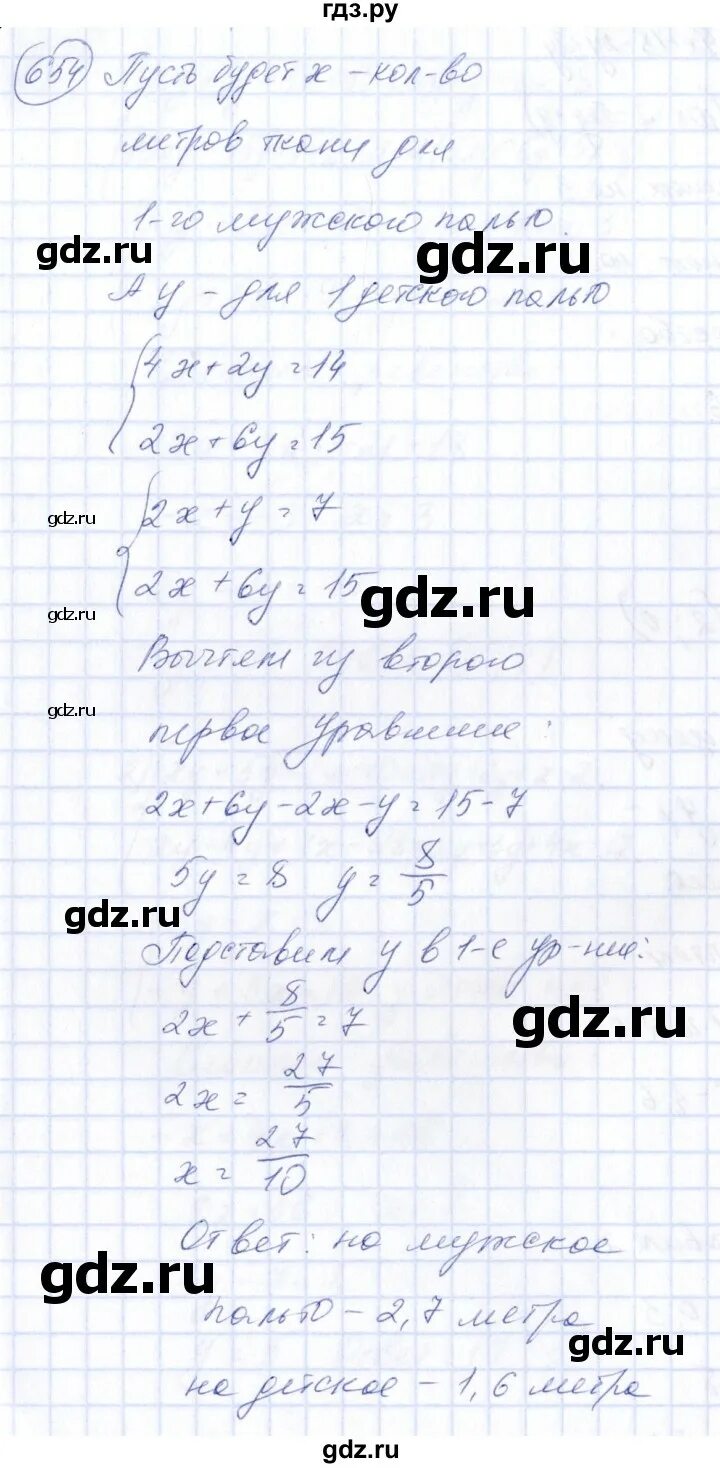 гдз.ру
654 Пусть будет x - кол-во
метров ткани для
1-го мужского пальто.
gdz.ru
gdz.ru
А y - для 1 детского пальто
4x+2y=14
2x+6y=15
gdz.ru
2x+y=7
2x+6y=15
gdz.ru
gdz.ru
Вычтем из второго
gdz.ru
первое уравнение:
2x+6y-2x-y=15-7
5y=8 y=8/5
gdz.ru
Подставим y в 1-е ур-ние:
2x+8/5=7
gdz.ru
2x=27/5
x=27/10
Ответ: на мужское
gdz.ru
пальто - 2,7 метра
gdz.ru
на детское - 1,6 метра
gdz.ru